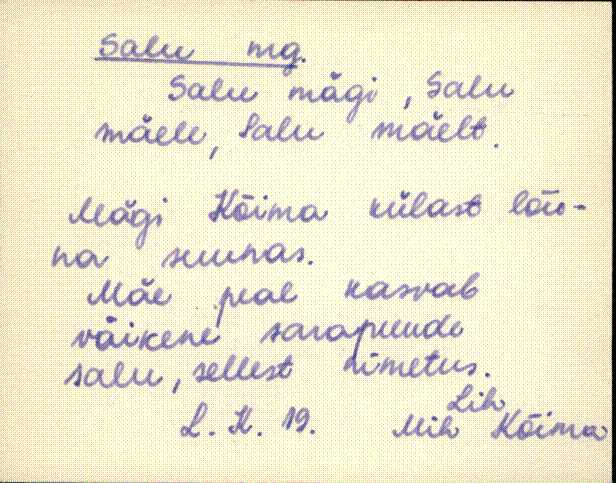 Salu mg.
Salu mägi, Salu
mäele, Salu mäelt.
Mägi Kõima külast lõu-
na suunas.
Mäe peal kasvab
väikene sarapuude
salu, sellest nimetus.
Lih
L. K. 19. Mih Kõima